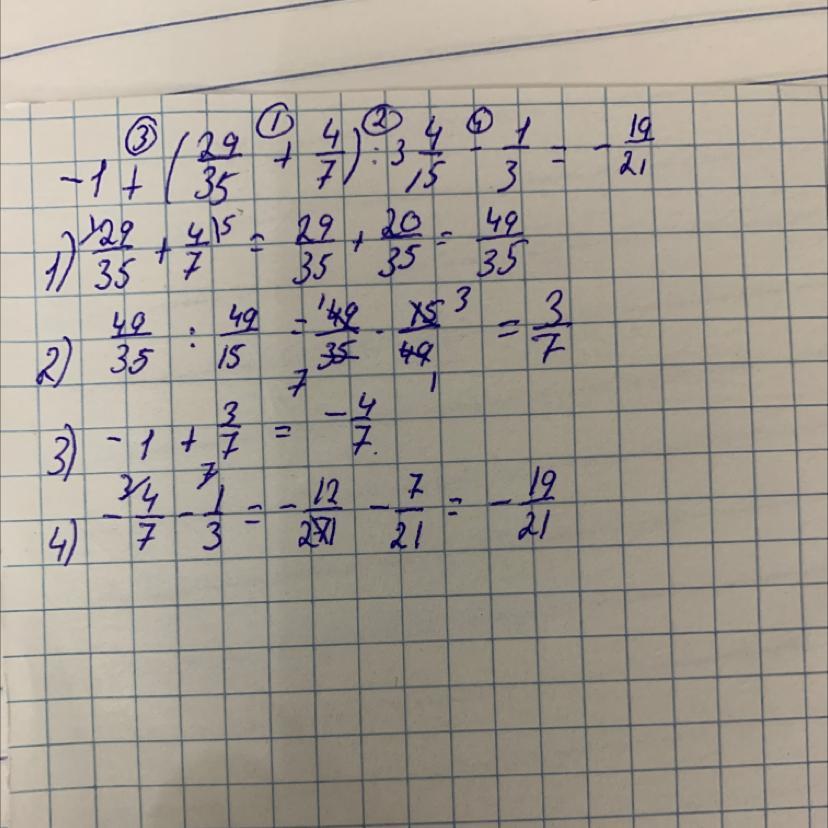 -1 + (29/35 + 4/7) : 3 4/15 - 1/3 = - 19/21
1) 29/35 + 4/7 = 29/35 + 20/35 = 49/35
2) 49/35 : 49/15 = 49/35 · 15/49 = 3/7
3) -1 + 3/7 = - 4/7
4) - 4/7 - 1/3 = - 12/21 - 7/21 = - 19/21